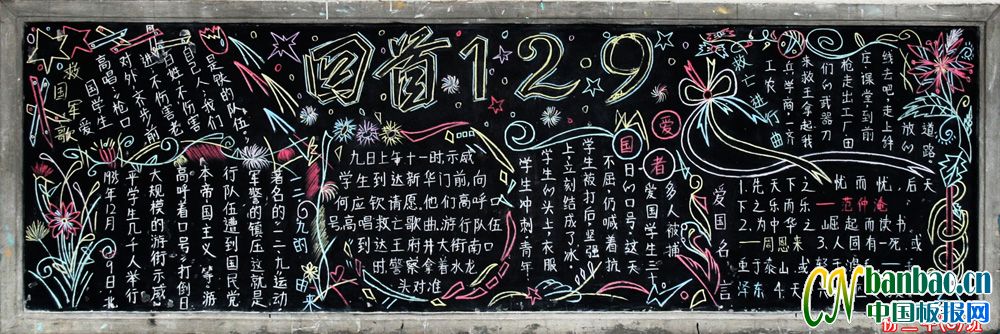 回首12.9
救国军歌
枪口
对外,齐步前
进!不伤害老
百姓,不伤害
自己人!我们
是铁的队伍,
爱国学生
高唱
一二九的由来
1935年12月9日,北
平学生几千人举行
大规模的游街示威
高呼着口号:打倒日
本帝国主义,等,游
行队伍遭到国民党
军警的镇压这就是
著名的一二·九运动
九日上午十一时示威
学生到达新华门前,向
何应钦请愿,他们高呼口
号,高唱救亡歌曲,游行队伍
到达王府井大街南口
时,警察拿着水龙
头对准
爱国者
学生冲刺青年
学生们头上,衣服
上立刻结成了冰,
学生被打后坚强
不屈,仍喊着抗
日的口号,这天
爱国学生三十
多人被捕
救亡进行曲
工农
兵学商,一齐
来救亡,拿起我
们的武器刀
枪,走出工厂田
庄课堂,到前
线去吧,走上
解放的
道路
爱国名言
1.先天下之忧而忧,后天
下之乐而乐
—范仲淹
2.为中华之崛起而读书。
—周恩来 3.人固有一死,或
重于泰山,或轻于鸿
泽东 4.天
CN banbao.cn
中国板报网